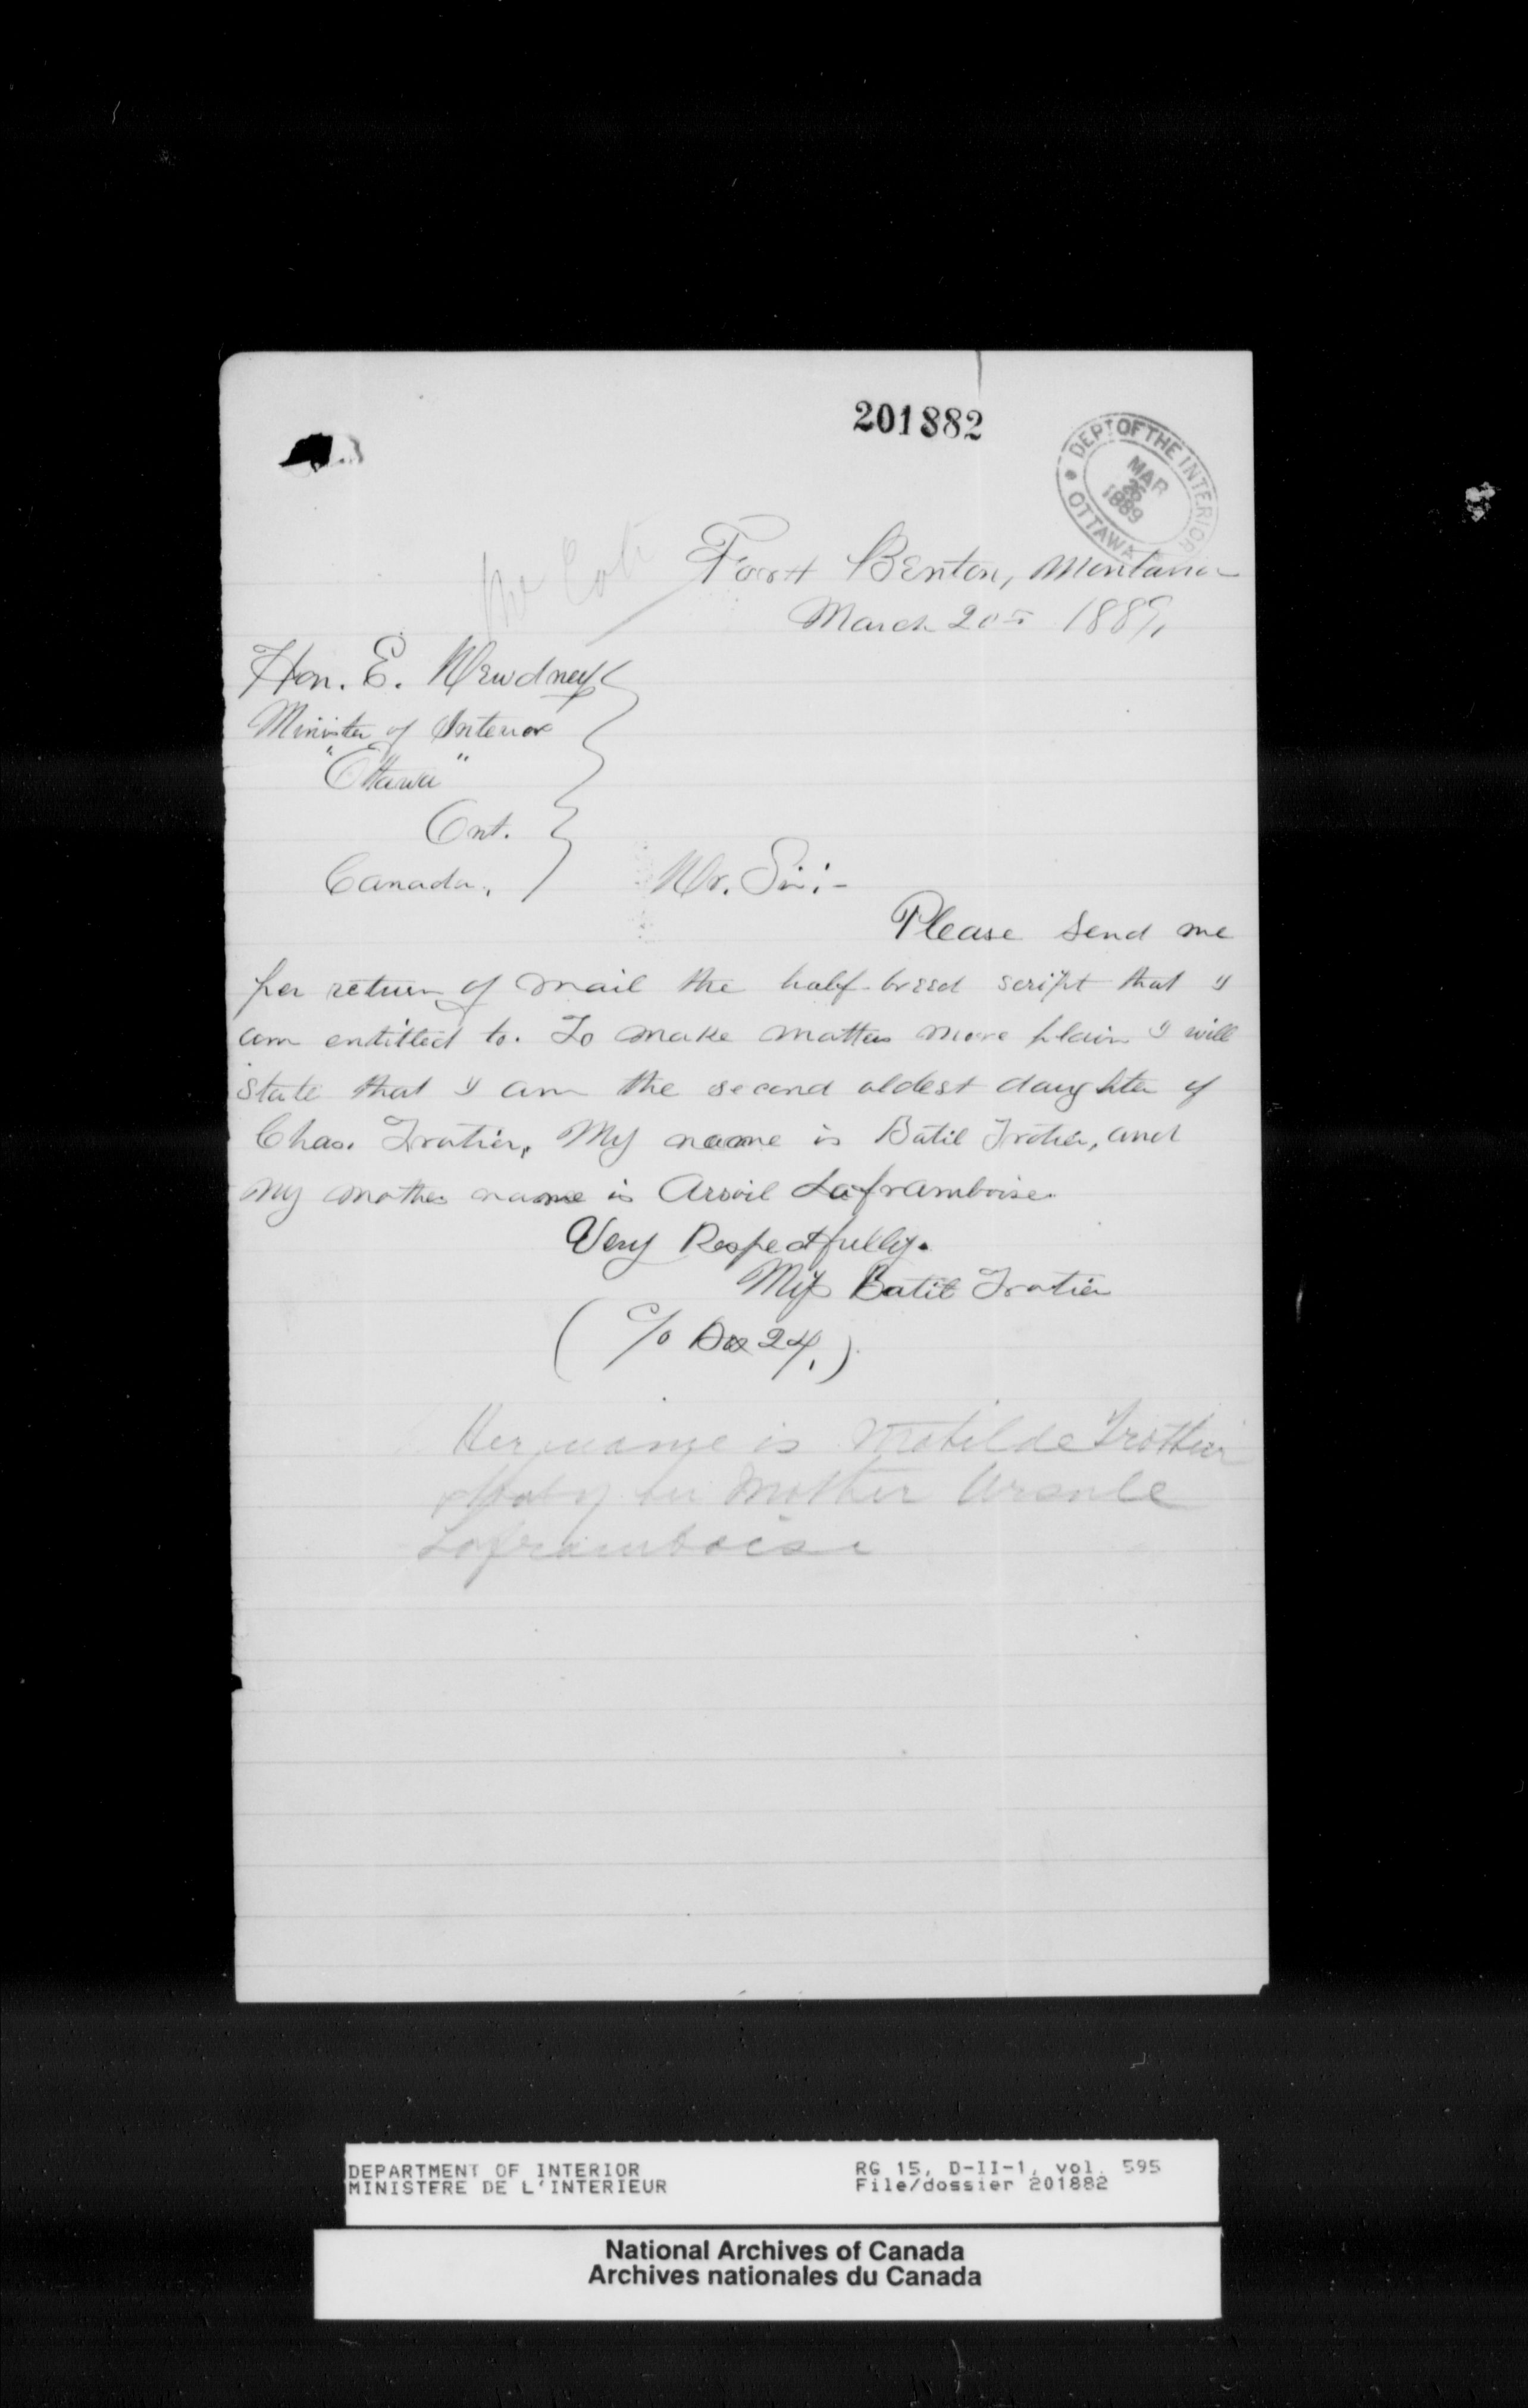 201882
DEPT OF THE INTERIOR
MAR
26
1889
OTTAWA
Mr Cote
Foort Benton, Montana
March 20th 1889,
Hon. E. Dewdney
Minister of Interior
"Ottawa"
Ont.
Canada.
Dr. Sir:-
Please send me
per return of mail the half-breed script that I
am entitled to. To make matters more plain I will
state that I am the second oldest daughter of
Chas. Trotier, My name is Batil Trotier, and
my mother name is Arsoil Laframboise.
Very Respectfully.
Miss Batil Trotier
(c/o Box 24.)
Her name is Matilde Trottier
& that of her mother Ursule
Laframboise
DEPARTMENT OF INTERIOR
MINISTERE DE L'INTERIEUR
RG 15, D-II-1, vol. 595
File/dossier 201882
National Archives of Canada
Archives nationales du Canada